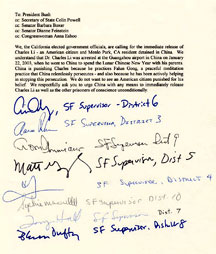 To: President Bush
cc: Secretary of State Colin Powell
cc: Senator Barbara Boxer
cc: Senator Dianne Feinstein
cc: Congresswoman Anna Eshoo
We, the California elected government officials, are calling for the immediate release of Charles
Li - an American citizen and Menlo Park, CA resident detained in China. We
understand that Dr. Charles Li was arrested at the Guangzhou airport in China on January
22, 2003, when he went to China to spend the Lunar Chinese New Year with his parents.
China is punishing Charles because he practices Falun Gong, a peaceful meditation
practice that China relentlessly persecutes - and also because he has been actively helping
in stopping the persecution. We do not want to see an American citizen punished for his
belief. We respectfully ask you to sign China with any means to immediately release
Charles Li as well as the other prisoners of conscience unconditionally.
SF Supervisor - District 6
SF Supervisor, District 3
SF Supervisor Dist 9
Matt SF Supervisor, Dist 5
SF Supervisor, District 4
SF Supervisor Dist. 10
SF Supervisor Dist. 7
Bevan Dufty SF Supervisor, District 8